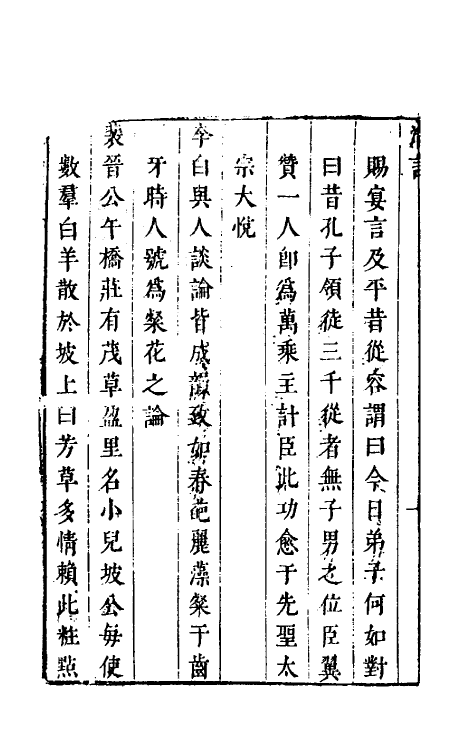 賜宴言及平昔從容謂曰今日弟子何如對
曰昔孔子領徒三千從者無子男之位臣翼
贊一人卽爲萬乘主計臣此功愈于先聖太
宗大悅
李白與人談論皆成韻致如春葩麗藻粲于齒
牙時人號爲粲花之論
裴晉公午橋莊有茂草盈里名小兒坡公每使
數羣白羊散於坡上曰芳草多情賴此粧點